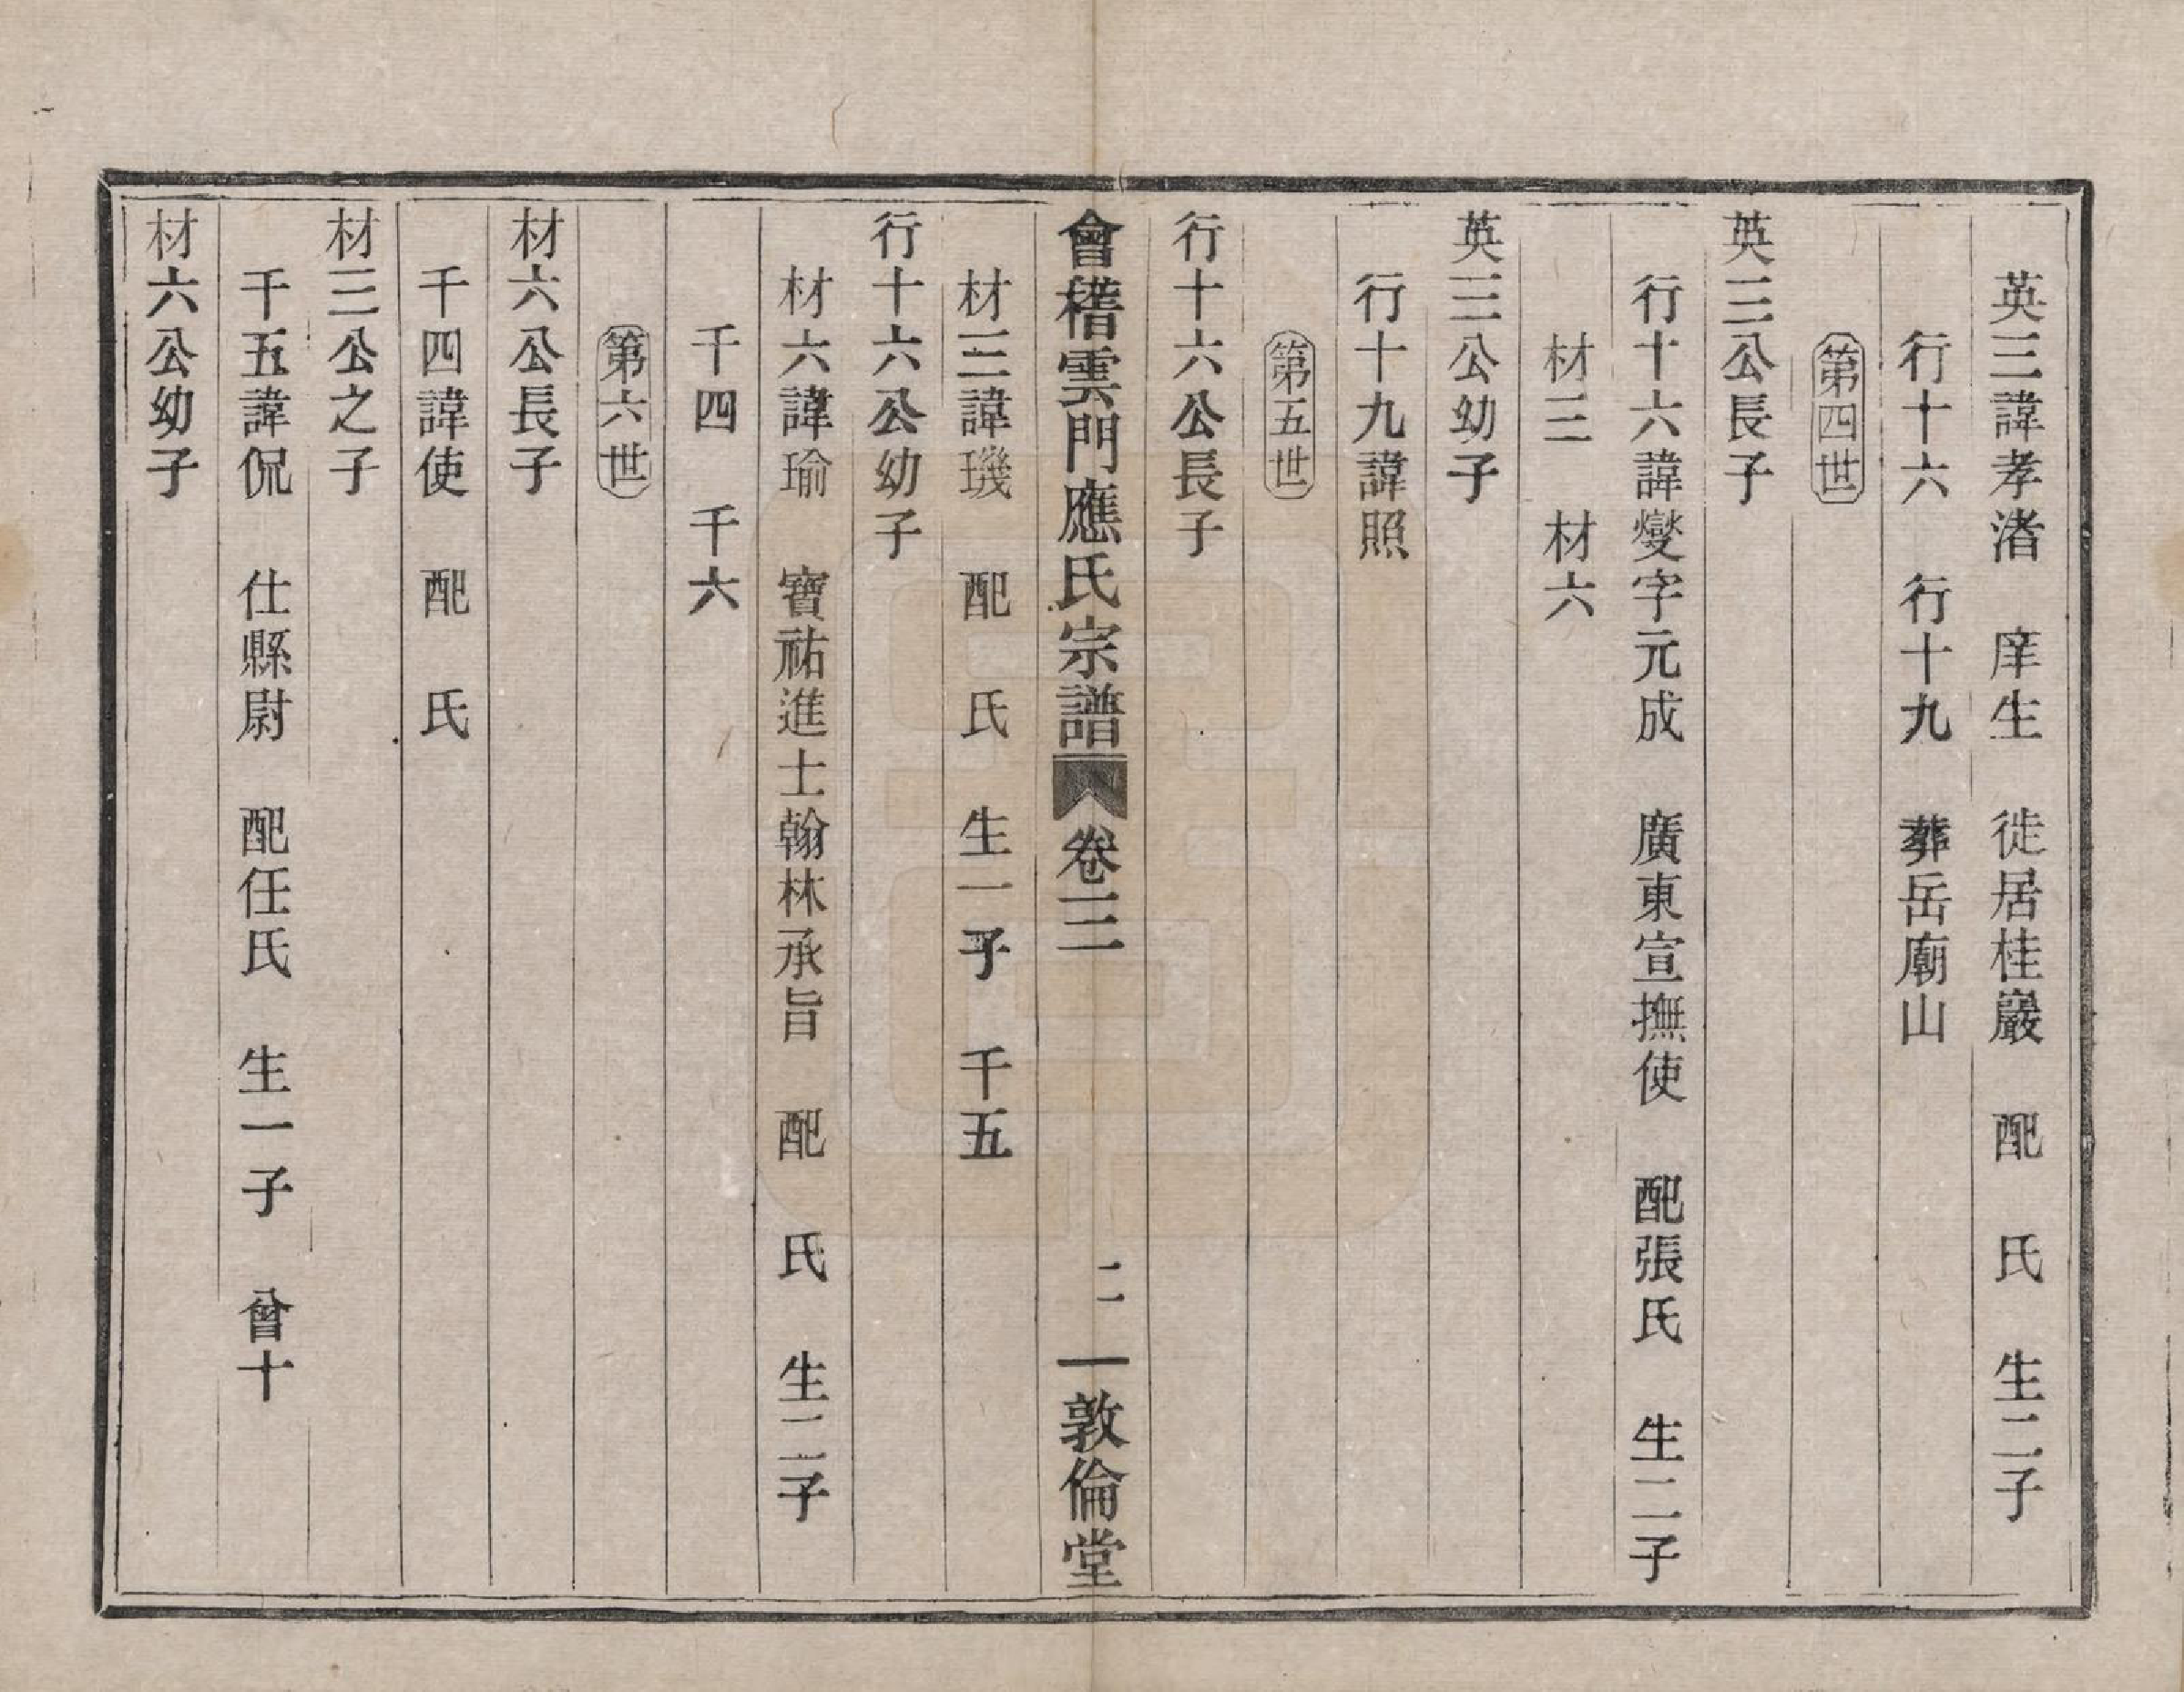 英三諱孝渚　庠生　徙居桂巖　配　氏　生二子
行十六　行十九　葬岳廟山
第四世
英三公長子
行十六諱燮字元成　廣東宣撫使　配張氏　生二子
材三　材六
英三公幼子
行十九諱照
第五世
行十六公長子
會稽雲門應氏宗譜　卷三　二　敦倫堂
材三諱璣　配　氏　生一子　千五
行十六公幼子
材六諱瑜　寶祐進士翰林承旨　配　氏　生二子
千四　千六
第六世
材六公長子
千四諱使　配　氏
材三公之子
千五諱侃　仕縣尉　配任氏　生一子　曾十
材六公幼子